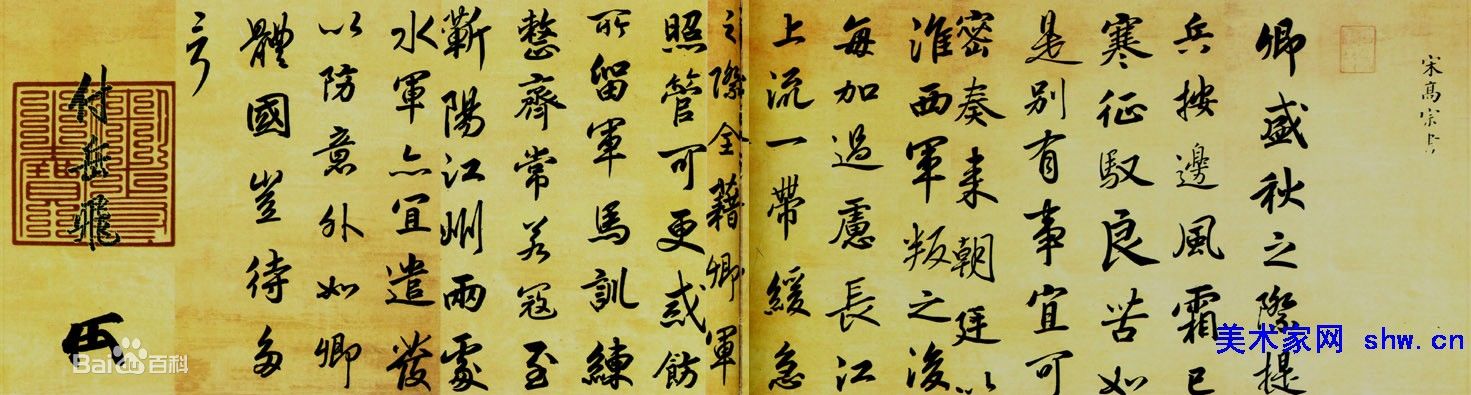 宋高宗書
卿盛秋之際提
兵按邊風霜已
寒征馭良苦如
是別有事宜可
密奏來朝廷以
淮西軍叛之後
每加過慮長江
上流一帶緩急
之際全藉卿軍
照管可更戒飭
所留軍馬訓練
整齊常若寇至
蘄陽江州兩處
水軍亦宜遣發
以防意外如卿
體國豈待多
言
付岳飛
美术家网 shw.cn
Bai百科